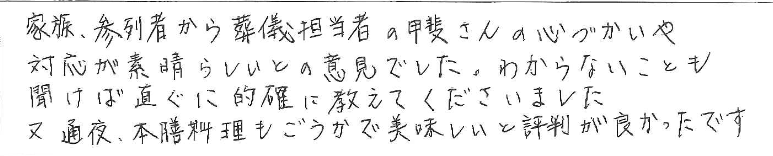 家族、参列者から葬儀担当者の甲斐さんの心づかいや
対応が素晴らしいとの意見でした。わからないことも
聞けば直ぐに的確に教えてくださいました
又通夜、本膳料理もごうかで美味しいと評判が良かったです